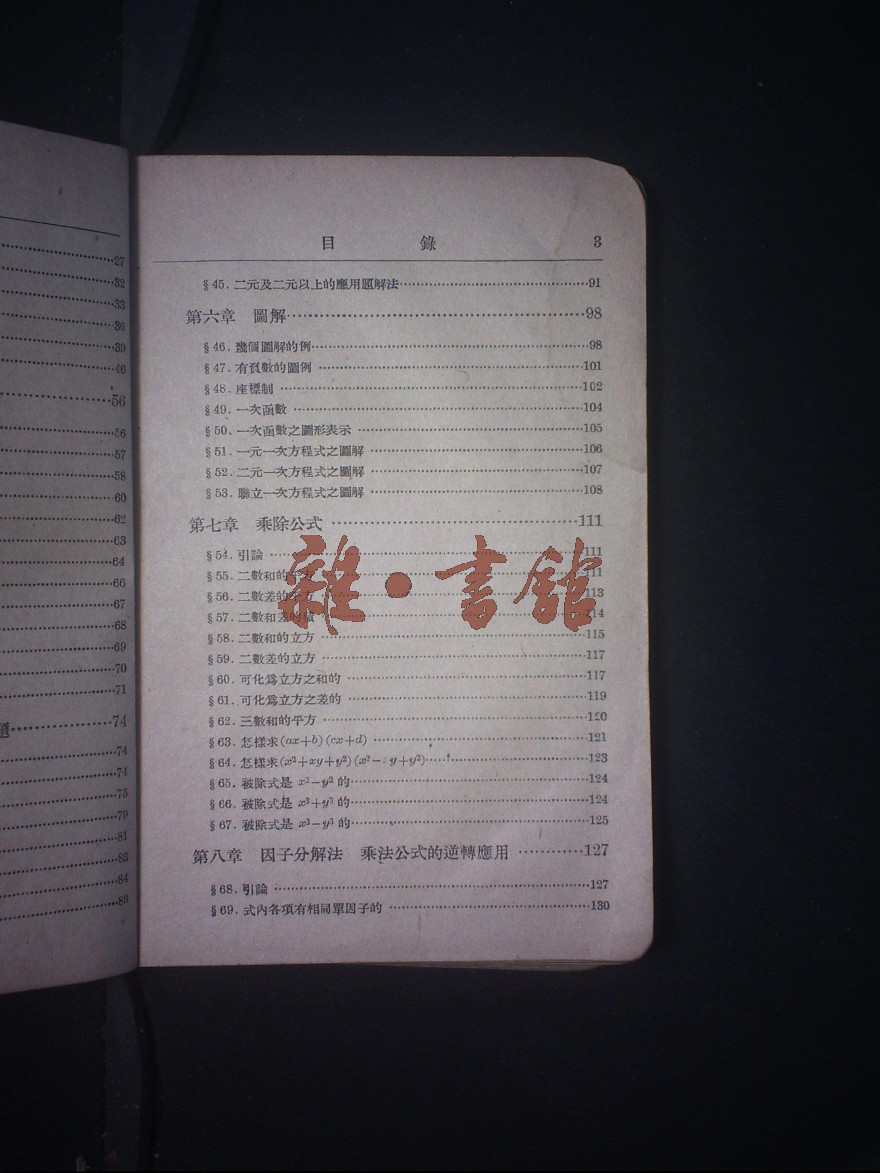 27
32
33
36
39
46
56
56
57
58
60
62
63
64
66
67
68
69
70
71
題 74
74
74
75
79
81
83
84
89
目 錄 3
§45. 二元及二元以上的應用題解法 91
第六章 圖解 98
§46. 幾個圖解的例 98
§47. 有負數的圖例 101
§48. 座標制 102
§49. 一次函數 104
§50. 一次函數之圖形表示 105
§51. 一元一次方程式之圖解 106
§52. 二元一次方程式之圖解 107
§53. 聯立一次方程式之圖解 108
第七章 乘除公式 111
§54. 引論 111
§55. 二數和的平方 111
§56. 二數差的平方 113
§57. 二數和差的積 114
§58. 二數和的立方 115
§59. 二數差的立方 117
§60. 可化爲立方之和的 117
§61. 可化爲立方之差的 119
§62. 三數和的平方 120
§63. 怎樣求(ax+b)(cx+d) 121
§64. 怎樣求(x²+xy+y²)(x²- y+y²) 123
§65. 被除式是 x²-y² 的 124
§66. 被除式是 x³+y³ 的 124
§67. 被除式是 x³-y³ 的 125
第八章 因子分解法 乘法公式的逆轉應用 127
§68. 引論 127
§69. 式內各項有相同單因子的 130
雜·書館